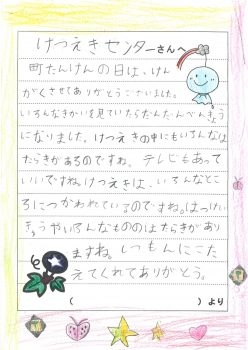 けつえきセンターさんへ
町たんけんの日は、けん
がくさせてありがとうございました。
いろんなきかいを見ていたらだんだんべんきょう
になりました。けつえきの中にもいろんなは
たらきがあるのですね。テレビもあって
いいですね。けつえきは、いろんなとこ
ろにつかわれているのですね。はっけっ
きゅうやいろんなもののはたらきがあり
ますね。しつもんにこた
えてくれてありがとう。
( )より